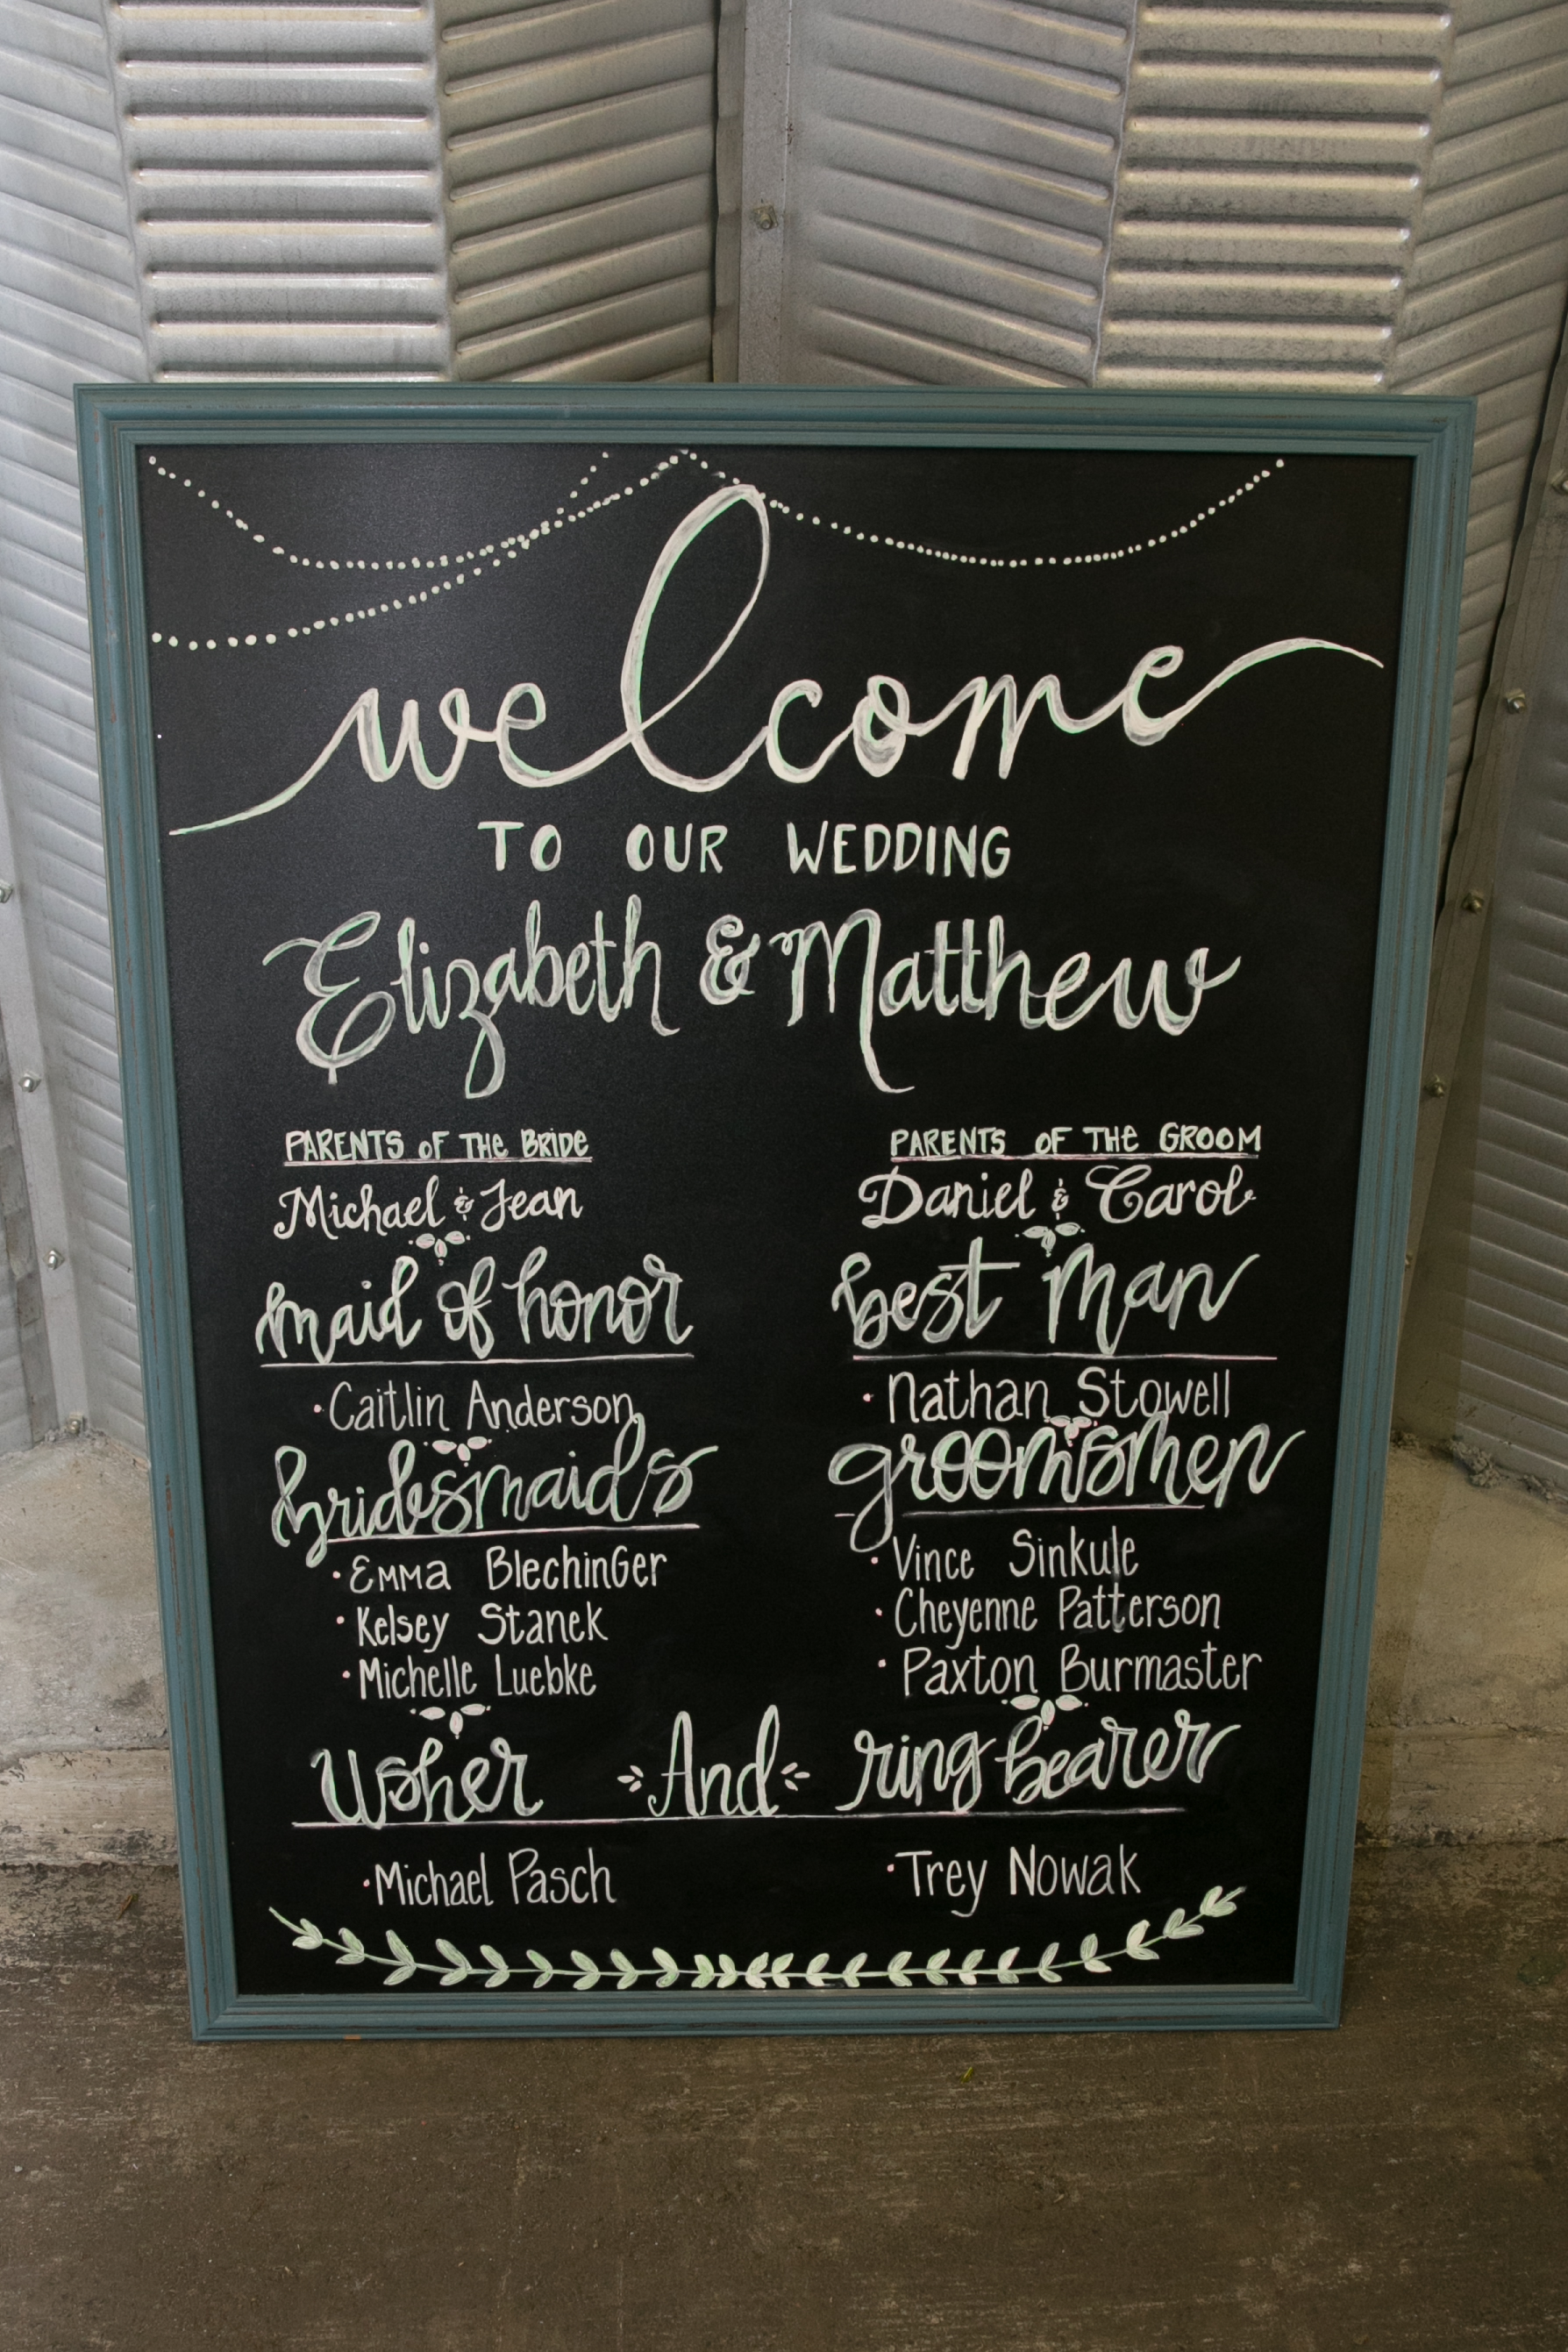 welcome
TO OUR WEDDING
Elizabeth & Matthew
PARENTS OF THE BRIDE
Michael & Jean
maid of honor
· Caitlin Anderson
bridesmaids
· Emma Blechinger
· Kelsey Stanek
· Michelle Luebke
PARENTS OF THE GROOM
Daniel & Carol
best man
· Nathan Stowell
groomsmen
· Vince Sinkule
· Cheyenne Patterson
· Paxton Burmaster
Usher And ring bearer
· Michael Pasch · Trey Nowak